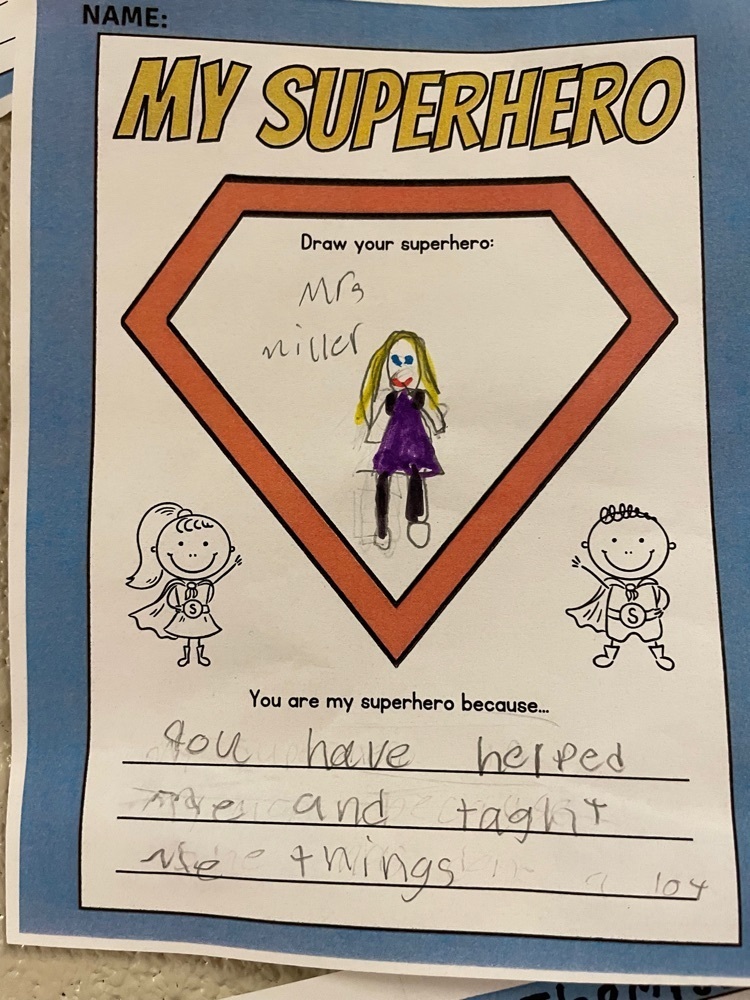 NAME:
MY SUPERHERO
Draw your superhero:
Mrs
miller
S
S
You are my superhero because...
you have helped
me and taght
me things a lot